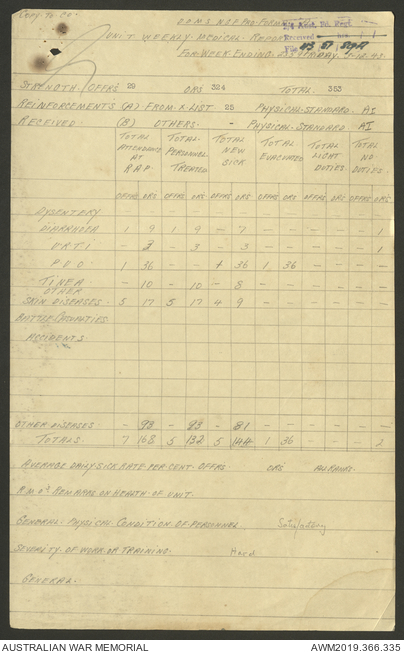 Copy to CO.
D.D.M.S. N.G.F. PRO-FORMA
Received
UNIT WEEKLY MEDICAL REPORT
File
FOR WEEK ENDING
STRENGTH. OFFRS 29 ORS 324 TOTAL. 353
REINFORCEMENTS (A) FROM X LIST 25 PHYSICAL STANDARD AI
RECEIVED (B) OTHERS. - PHYSICAL STANDARD AI
TOTAL ATTENDANCES AT RAP TOTAL PERSONNEL TREATED TOTAL NEW SICK TOTAL EVACUATED TOTAL LIGHT DUTIES. TOTAL NO DUTIES.
OFFRS ORS OFFRS ORS OFFRS ORS OFFRS ORS OFFRS ORS OFFRS ORS
DYSENTERY
DIARRHOEA 1 9 1 9 - 7 - - - - - 1
U.R.T.I - 3 - 3 - 3 - - - - - 1
P U O 1 36 - - + 36 1 36 - - - -
TINEA - 10 - 10 - 8 - - - - - -
OTHER
SKIN DISEASES. 5 17 5 17 4 9 - - - - - -
BATTLE CASUALTIES.
ACCIDENTS.
OTHER DISEASES - 93 - 93 - 81 - - - - - -
TOTALS. 7 168 5 132 5 144 1 36 - - - 2
AVERAGE DAILY SICK RATE PER CENT. OFFRS. ORS ALL RANKS.
R.M.O's REMARKS ON HEALTH OF UNIT.
GENERAL PHYSICAL CONDITION OF PERSONNEL Satisfactory
SEVERITY OF WORK OR TRAINING. Hard
GENERAL.
AUSTRALIAN WAR MEMORIAL AWM2019.366.335